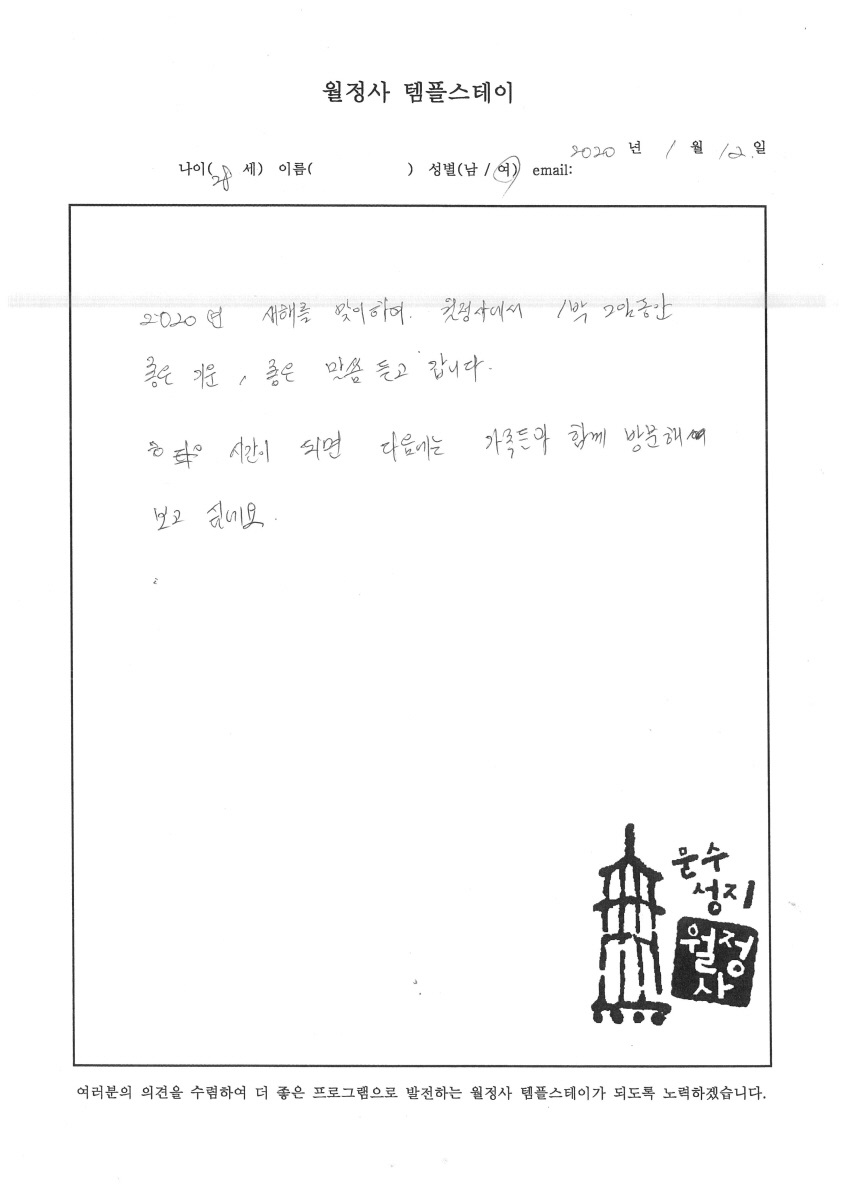 월정사 템플스테이
2020 년 1 월 12.일
나이(28 세) 이름( ) 성별(남 / 여) email:
2020년 새해를 맞이하며. 월정사에서 1박 2일동안
좋은 기운, 좋은 말씀 듣고 갑니다.
시간이 되면 다음에는 가족들과 함께 방문해
보고 싶네요.
문수
성지
월정
사
여러분의 의견을 수렴하여 더 좋은 프로그램으로 발전하는 월정사 템플스테이가 되도록 노력하겠습니다.